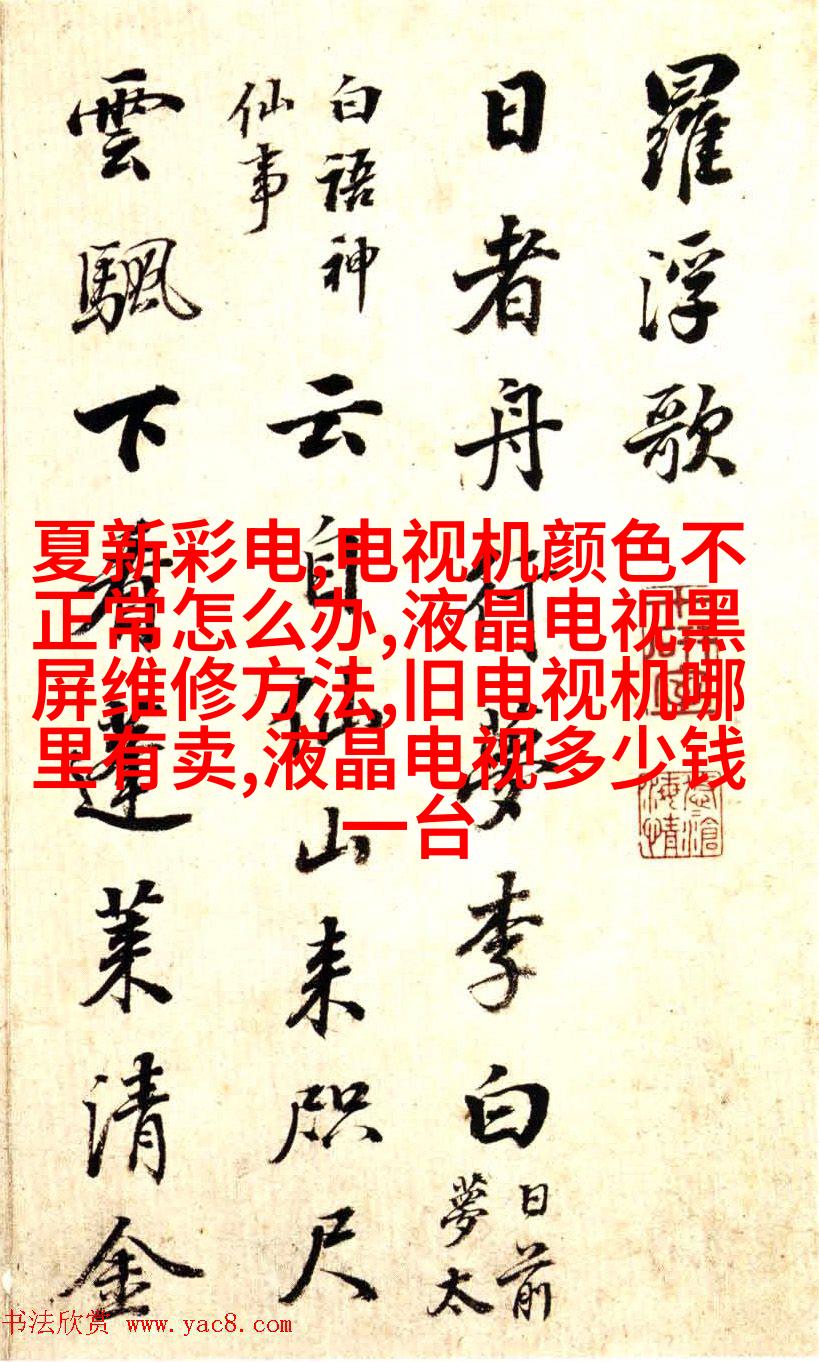 羅浮歌
日者舟行夢李白
日前
夢太
白語神
仙事
云自仙山来咫尺
雲颿下著蓬莱清金
夏新彩电,电视机颜色不
正常怎么办,液晶电视黑
屏维修方法,旧电视机哪
里有卖,液晶电视多少钱
一台
书法欣赏 www.yac8.com